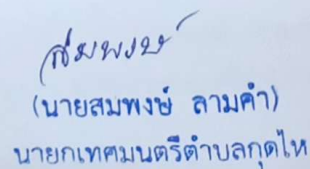 สมพงษ์
(นายสมพงษ์ ลามคำ)
นายกเทศมนตรีตำบลกุดไห